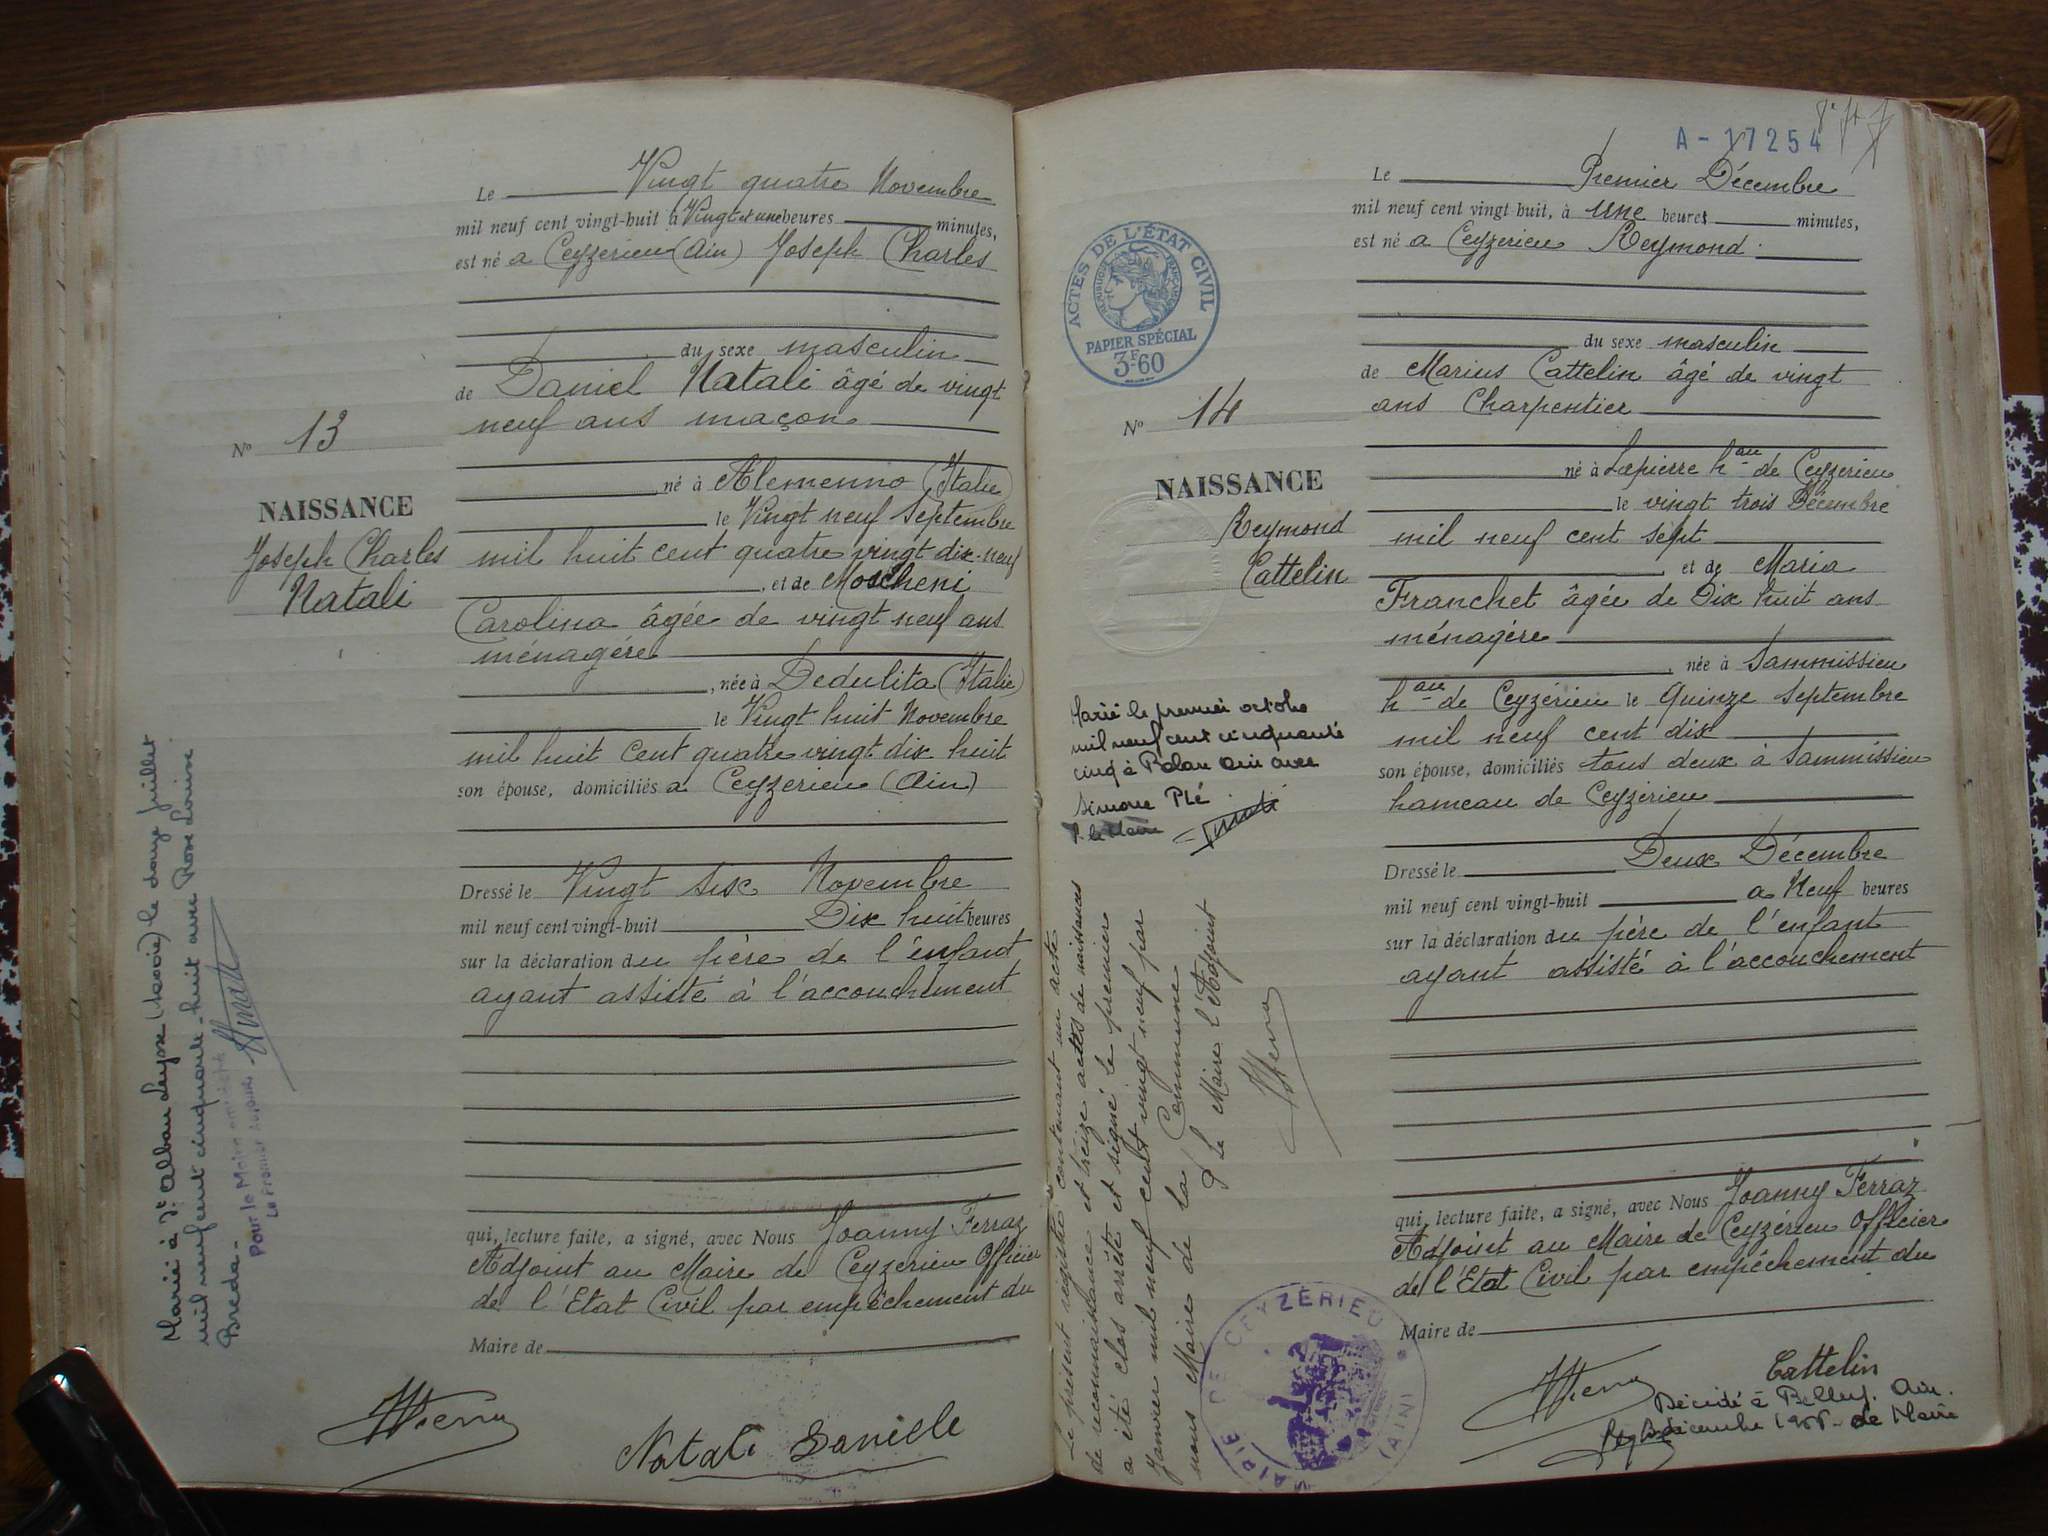 Le Vingt quatre Novembre
mil neuf cent vingt-huit à Vingt et une heures minutes,
est né a Ceyzerieu (Ain) Joseph Charles
du sexe masculin
de Daniel Natali âgé de vingt
neuf ans maçon
né à Alemenno (Italie)
le Vingt neuf Septembre
mil huit cent quatre vingt dix-neuf
, et de Moscheni
Carolina âgée de vingt neuf ans
ménagère
, née à Dedulita (Italie)
le Vingt huit Novembre
mil huit cent quatre vingt dix huit
son épouse, domiciliés a Ceyzerieu (Ain)
Dressé le Vingt Six Novembre
mil neuf cent vingt-huit Dix huit heures
sur la déclaration du père de l'enfant
ayant assisté à l'accouchement
qui, lecture faite, a signé, avec Nous Joanny Ferraz
Adjoint au Maire de Ceyzerieu Officier
de l'Etat Civil par empêchement du
Maire de
Natali Daniele
No 13
NAISSANCE
Joseph Charles
Natali
Marié à St Alban Leysse (Savoie) le douze Juillet
mil neuf cent cinquante-huit avec Rose Louise
Breda.
Pour le Maire empêché
Le Premier Adjoint
A-17254
Le Premier Décembre
mil neuf cent vingt huit, à une heures minutes,
est né a Ceyzerieu Reymond
du sexe masculin
de Marius Cattelin âgé de vingt
ans Charpentier
né à Lapierre hau de Ceyzerieu
le vingt trois Décembre
mil neuf cent sept
, et de Maria
Franchet âgée de Dix huit ans
ménagère
, née à Sammissieu
hau de Ceyzérieu le Quinze Septembre
mil neuf cent dix
son épouse, domiciliés tous deux à Sammissieu
hameau de Ceyzerieu
Dressé le Deux Décembre
mil neuf cent vingt-huit a Neuf heures
sur la déclaration du père de l'enfant
ayant assisté à l'accouchement
qui, lecture faite, a signé, avec Nous Joanny Ferraz
Adjoint au Maire de Ceyzérieu Officier
de l'Etat Civil par empêchement du
Maire de
Cattelin
Décédé à Belley. Ain.
décembre
le Maire
ACTES DE L'ÉTAT CIVIL
RÉPUBLIQUE FRANÇAISE
PAPIER SPÉCIAL
3F60
No 14
NAISSANCE
Reymond
Cattelin
Marié le premier octobre
mil neuf cent cinquante
cinq à Ain avec
Simone Plé
P. le Maire
Le présent registre contenant un acte
de reconnaissance et treize actes de naissances
a été clos arrêté et signé le premier
Janvier mil neuf cent vingt neuf par
nous Maire de la Commune
P Le Maire l'Adjoint
MAIRIE DE CEYZÉRIEU (AIN)